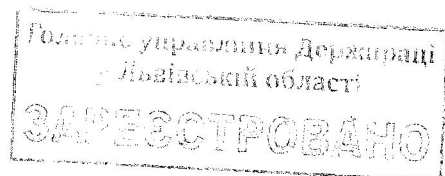 Головне управління Держпраці
у Львівській області
ЗАРЕЄСТРОВАНО